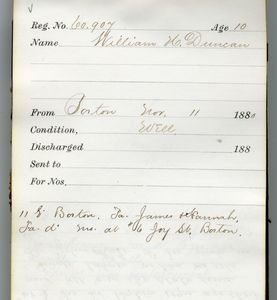 Reg. No. 60.907 Age 10
Name William H. Duncan
From Boston Nov. 11 188
Condition, Well
Discharged 188
Sent to
For Nos,
Boston. Fa. James & Hannah,
Fa. d. mo. at Joy St, Boston.